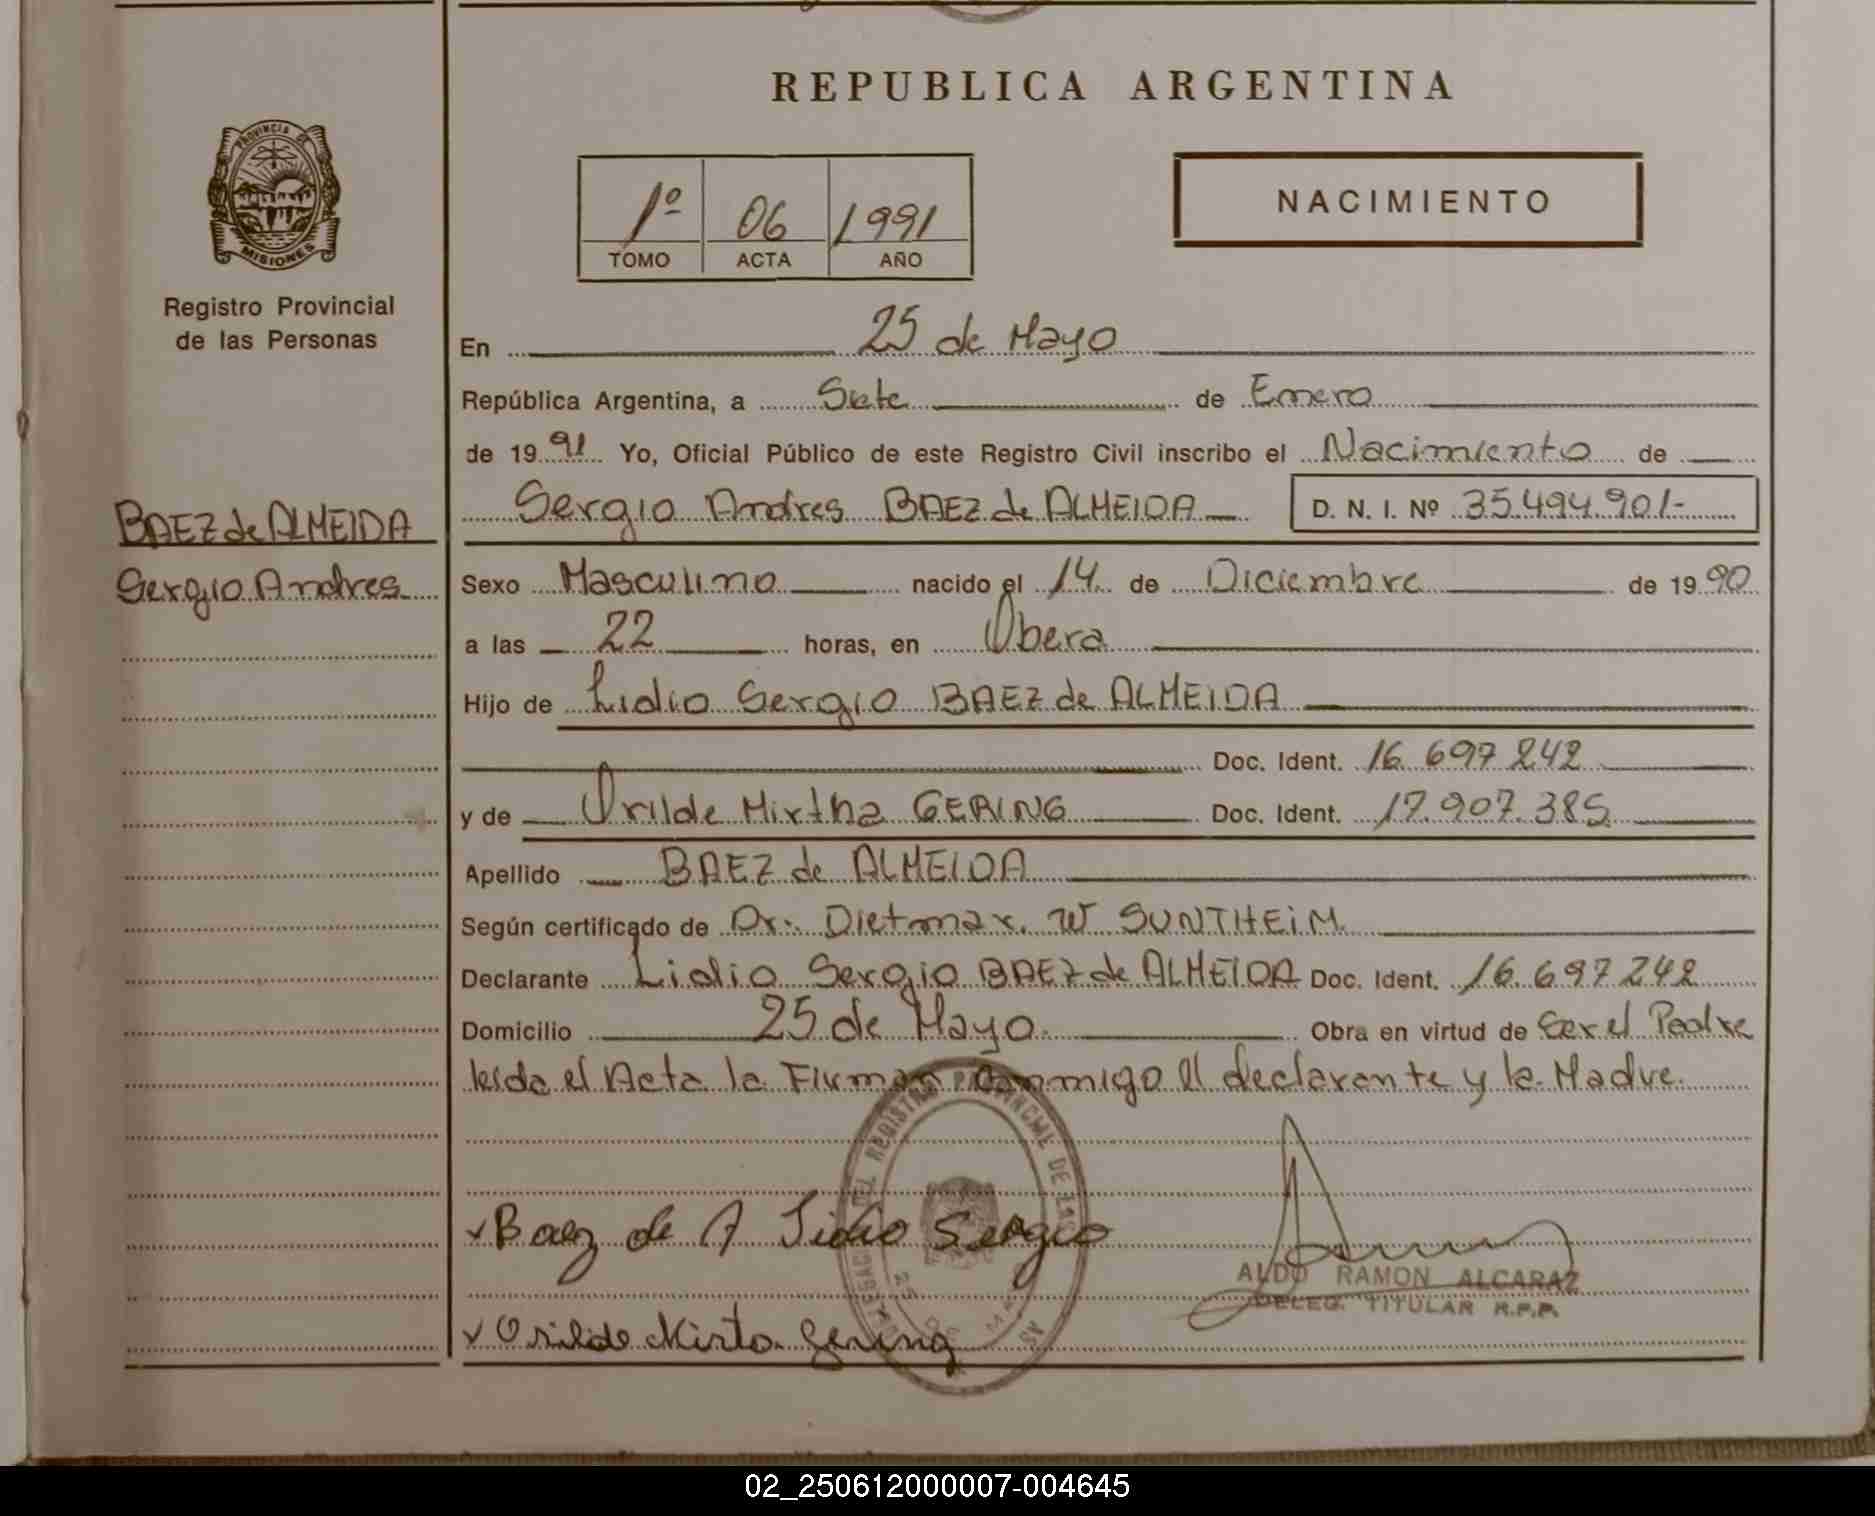 REPUBLICA ARGENTINA
PROVINCIA DE
MISIONES
Registro Provincial
de las Personas
1º 06 1991
TOMO ACTA AÑO
NACIMIENTO
En 25 de Mayo
República Argentina, a Siete de Enero
de 1991 Yo, Oficial Público de este Registro Civil inscribo el Nacimiento de
Sergio Andres BAEZ de ALMEIDA D. N. I. Nº 35.494.901-
BAEZ de ALMEIDA
Sergio Andres
Sexo Masculino nacido el 14 de Diciembre de 1990
a las 22 horas, en Obera
Hijo de Lidio Sergio BAEZ de ALMEIDA
Doc. Ident. 16.697.242
y de Orilde Mirtha GERING Doc. Ident. 17.907.385
Apellido BAEZ de ALMEIDA
Según certificado de Dr. Dietmar. W SUNTHEIM
Declarante Lidio Sergio BAEZ de ALMEIDA Doc. Ident. 16.697.242
Domicilio 25 de Mayo Obra en virtud de Ser el Padre
leida el Acta la Firman Conmigo el declarante y la Madre.
DEL REGISTRO PROVINCIAL DE LAS
25 DE MAYO
Baez de A Lidio Sergio
ALDO RAMON ALCARAZ
DELEG. TITULAR R.P.P.
Orilde Mirta Gering
02_250612000007-004645